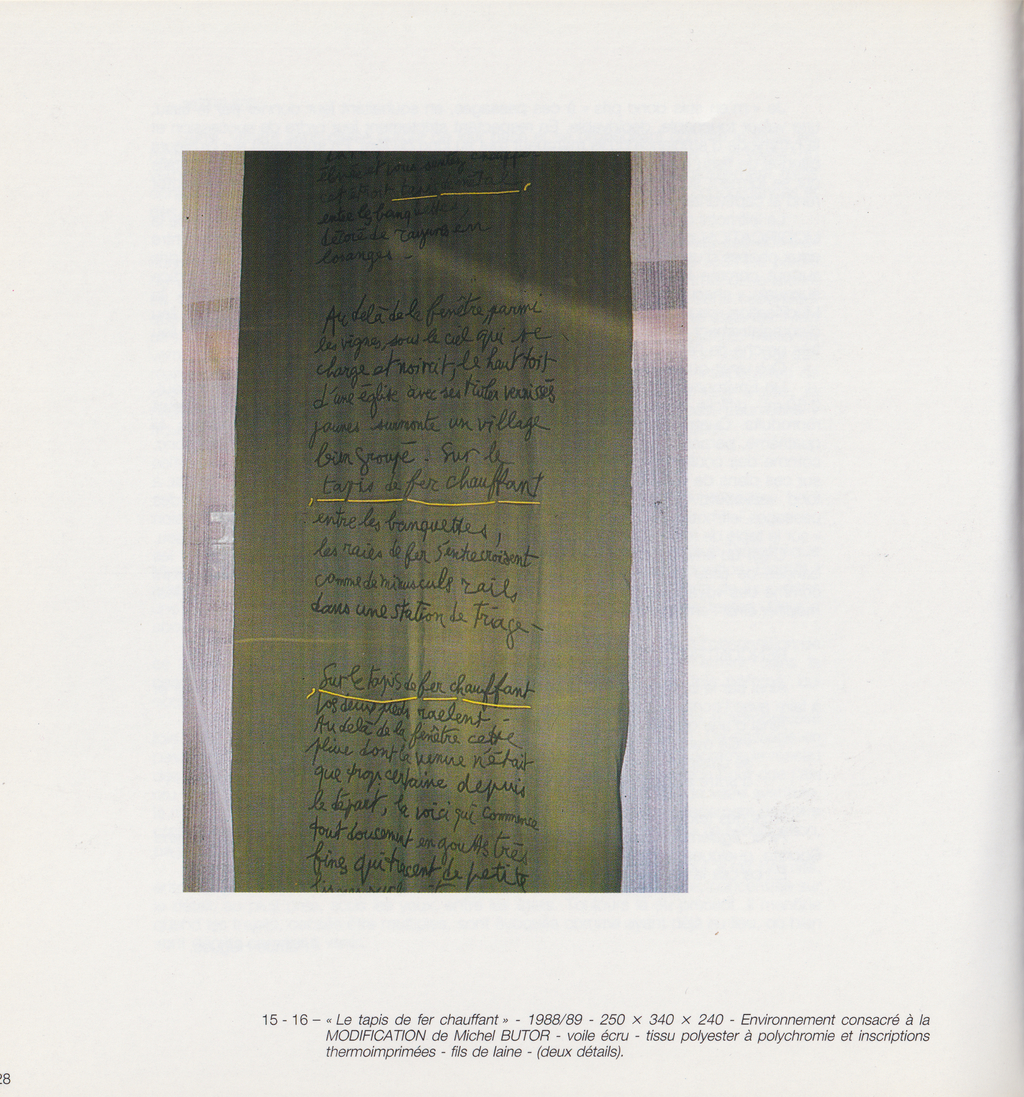 étroit et vous sentez chauffe
entre les banquettes,
décoré de rayures en
losanges -
Au delà de la fenêtre, parmi
les vignes, sous le ciel qui se
charge et noircit, le haut toit
d'une église avec ses tuiles vernissés
jaunes surmonte un village
bien groupé. Sur le
tapis de fer chauffant
entre les banquettes,
les raies de fer s'entrecroisent
comme de minusculs rails
dans une station de triage -
Sur le tapis de fer chauffant
vos deux pieds raclent -
Au delà de la fenêtre cette
pluie dont la venue n'était
que trop certaine depuis
le départ, la voici qui commence
tout doucement en gouttes très
fines qui tracent de petite
15 - 16 – « Le tapis de fer chauffant » - 1988/89 - 250 × 340 × 240 - Environnement consacré à la
MODIFICATION de Michel BUTOR - voile écru - tissu polyester à polychromie et inscriptions
thermoimprimées - fils de laine - (deux détails).
28